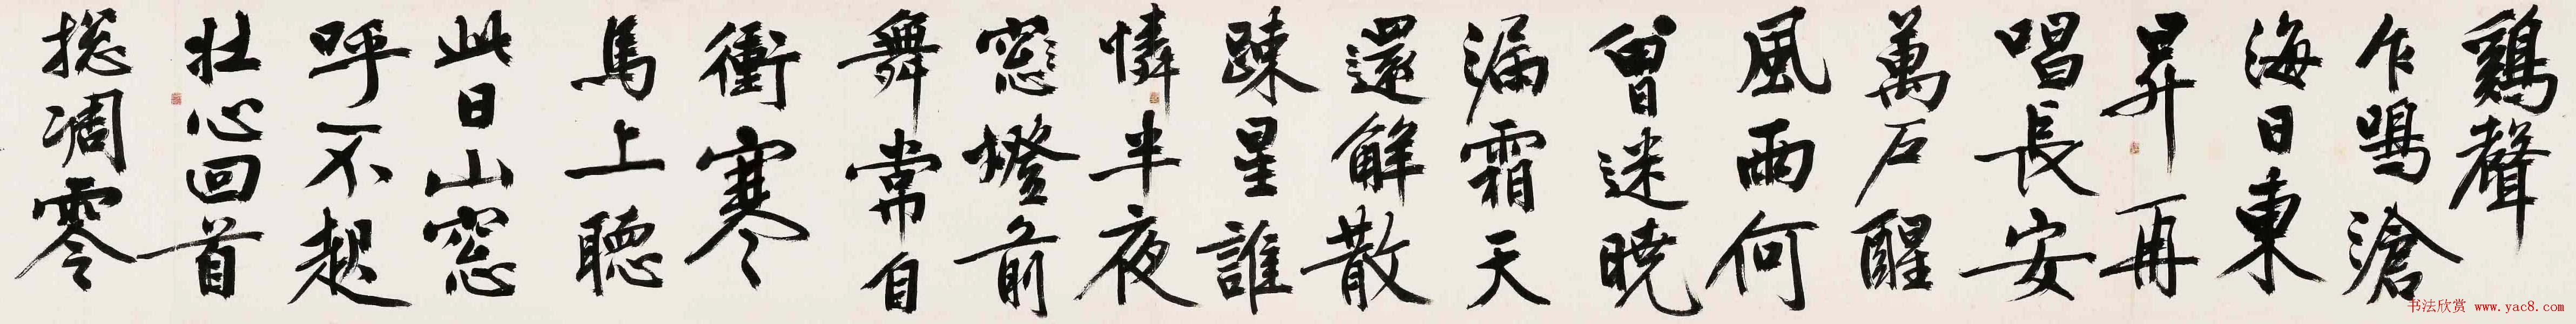 鷄聲
乍鳴滄
海日東
昇再
唱長安
萬戶醒
風雨何
曾迷曉
漏霜天
還解散
踈星誰
憐半夜
窓燈前
舞常自
衝寒
馬上聽
此日山窓
呼不起
壯心回首
摠凋零
书法欣赏 www.yac8.com